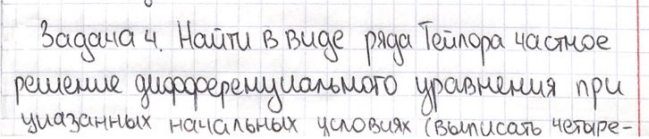 Задача 4. Найти в виде ряда Тейлора частное
решение дифференциального уравнения при
указанных начальных условиях (выписать четыре-